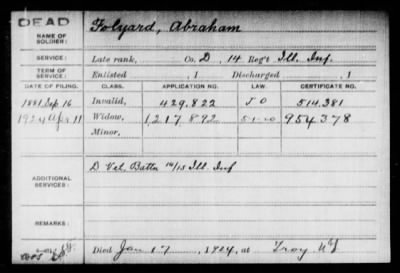 DEAD
NAME OF SOLDIER: Folyard, Abraham
SERVICE: Late rank, Co. D, 14 Reg't Ill. Inf.
TERM OF SERVICE: Enlisted , 1 Discharged , 1
DATE OF FILING. CLASS. APPLICATION NO. LAW. CERTIFICATE NO.
1881 Sep 16 Invalid, 429.822 514.381
1924 Apr 11 Widow, 1217892 954378
Minor,
ADDITIONAL SERVICES: D Vet. Battn 14/15 Ill Inf
REMARKS:
Died Jan 17, 1924, at Troy